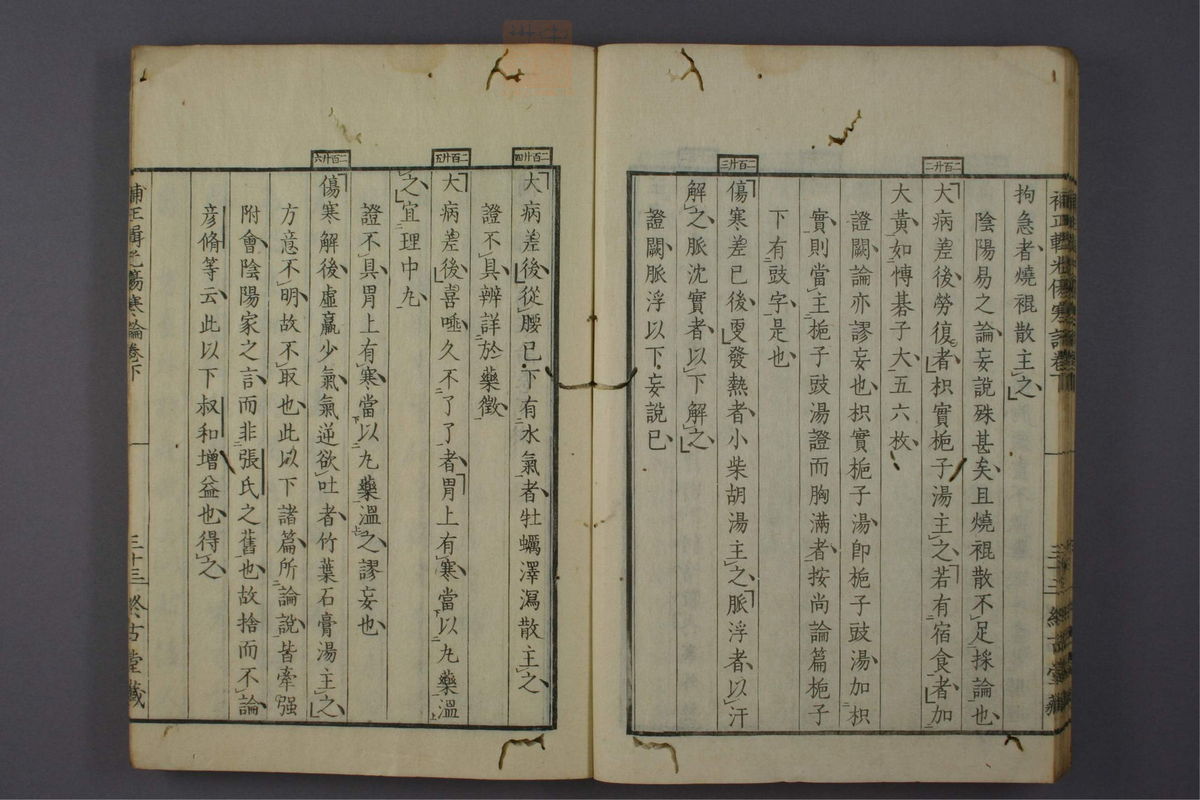 拘急者燒裩散主之
陰陽易之論妄說殊甚矣且燒裩散不足採論也
二百廿二
大病差後勞復者枳實梔子湯主之若有宿食者加
大黃如慱碁子大五六枚
證闕論亦謬妄也枳實梔子湯卽梔子豉湯加枳
實則當主梔子豉湯證而胸滿者按尚論篇梔子
下有豉字是也
二百廿三
傷寒差已後更發熱者小柴胡湯主之脈浮者以汗
解之脈沈實者以下解之
證闕脈浮以下妄說已
二百廿四
大病差後從腰已下有水氣者牡蠣澤瀉散主之
證不具辨詳於藥徵
二百廿五
大病差後喜唾久不了了者胃上有寒當以丸藥溫
之宜理中丸
證不具胃上有寒當以丸藥溫之謬妄也
二百廿六
傷寒解後虛羸少氣氣逆欲吐者竹葉石膏湯主之
方意不明故不取也此以下諸篇所論說皆牽强
附會陰陽家之言而非張氏之舊也故捨而不論
彦脩等云此以下叔和增益也得之
補正輯光傷寒論卷下
三十三